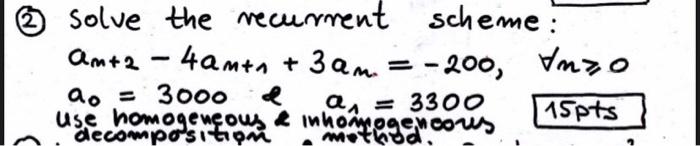 ② Solve the recurrent scheme:
aₙ₊₂ - 4aₙ₊₁ + 3aₙ = -200, ∀n≥0
a₀ = 3000 & a₁ = 3300
15pts
use homogeneous & inhomogeneous
decomposition method.